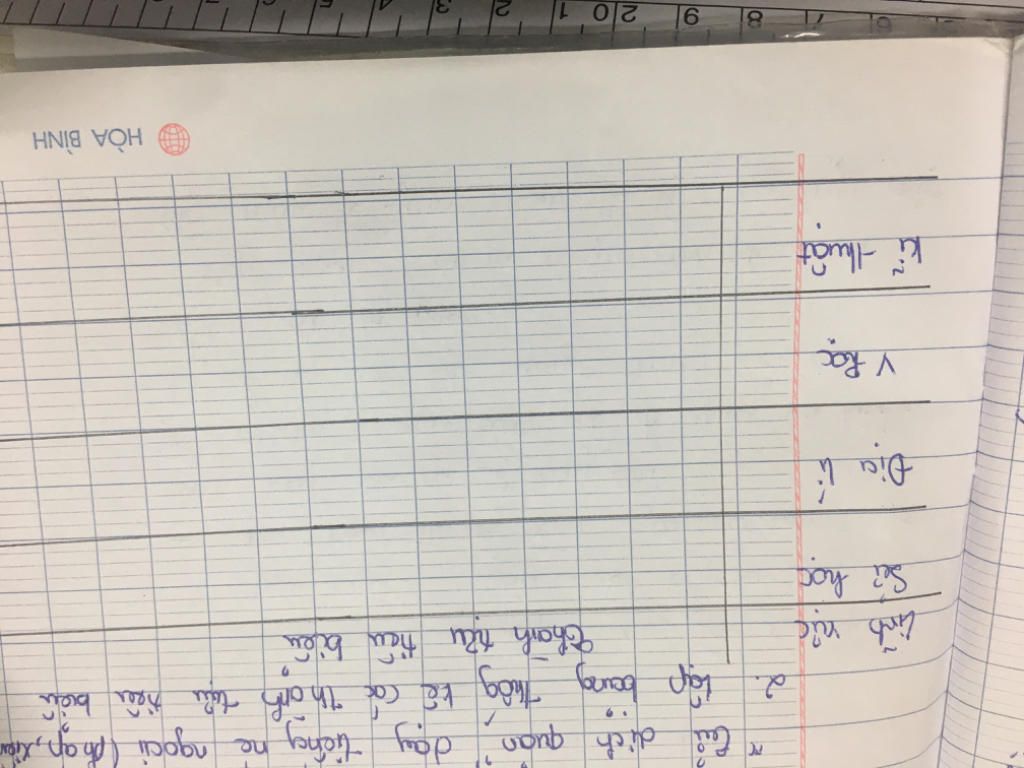 dịch quán dạy tiếng nc ngoài (pháp, xiêm
2. Lập bảng thốg kê các thành tựu tiêu biểu
Lĩnh vực Thành tựu tiêu biểu
Sử học
Địa lí
Y học
Kĩ thuật
HÒA BÌNH
6 7 8 9 20 1 2 3 4 5 6 7